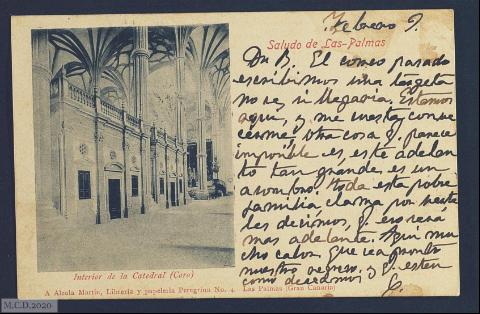 Febrero 9.
Saludo de Las-Palmas
Dn B. El correo pasado
escribimos una targeta
no se si llegaria. Estamos
aqui, y me cuesta
otra cosa q. parece
imposible es, este adelan
to tan grande, es un
asombro, toda esta pobre
familia clama por
les decimos, q. eso sera
mas adelante. Aqui mu
cho calor que sea pronto
nuestro regreso y q. esten
como deseamos
Interior de la Catedral (Coro)
A Alzola Martin, Libreria y papeleria Peregrina No. 4 Las Palmas (Gran Canaria)
M.C.D.2020